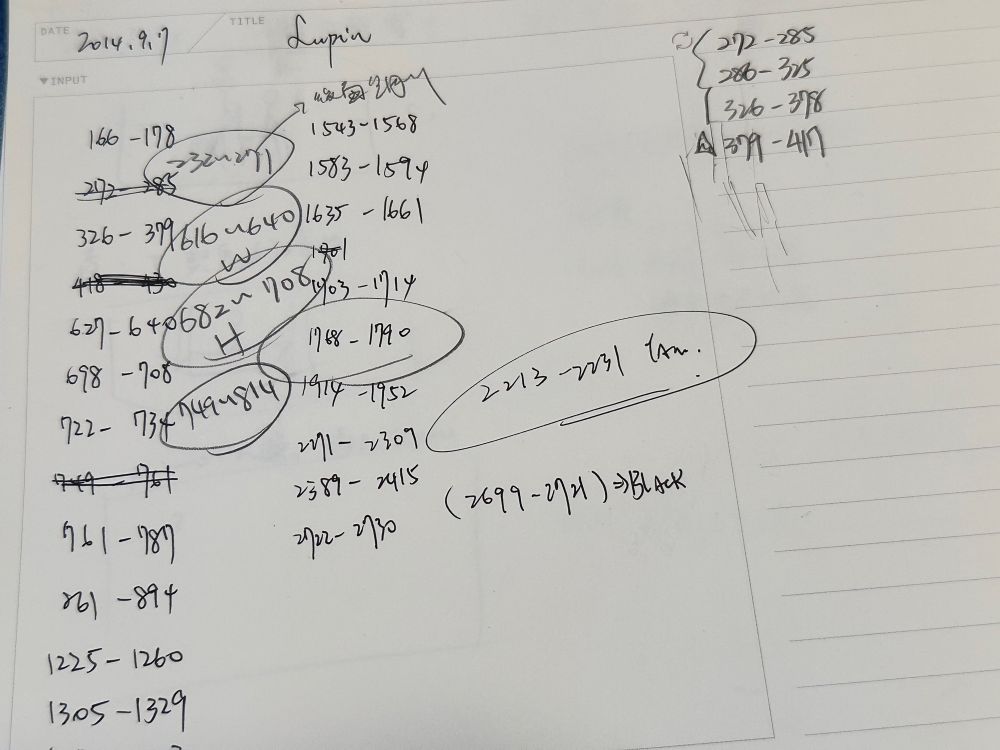 DATE 2014.9.7 TITLE Lupin
▼INPUT
166 - 178
232~271
272 - 285
326 - 379
616~640
W
418 - 430
627 - 640
682~708
H
698 - 708
722 - 734
749~814
749 - 761
761 - 787
861 - 894
1225 - 1260
1305 - 1329
1543 - 1568
1583 - 1594
1635 - 1661
1703 - 1714
1768 - 1790
1914 - 1952
2271 - 2309
2389 - 2415
2722 - 2730
2213 - 2231
(2699 - 2721) ⇒ BLACK
272 - 285
286 - 325
326 - 378
379 - 417